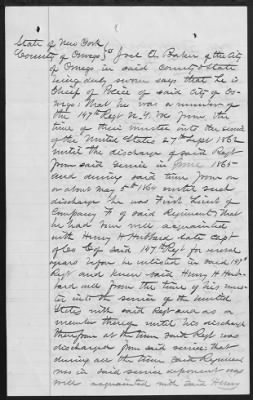 State of New York
County of Oswego } Joel A. Baker of the City
of Oswego in said County & State
being duly sworn says that he is
Chief of Police of said City of Os-
wego; that he was a member of
the 147th Regt N.Y. Vol from the
time of their muster into the service
of the United States 27th Sept 1862
until the discharge of said Regt
from said service in June 1865
and during said time from on
or about May 5th 1864 until such
discharge he was First Lieut of
Company F of said Regiment; that
he had been well acquainted
with Henry H Hubbard late Capt
of Co of said 147 Regt for several
years before he enlisted in said 147th
Regt and knew said Henry H Hub-
bard well from the time of his mus-
ter into the service of the United
States with said Regt and as a
member thereof until his discharge
therefrom at the time said Regt was
discharged from said service; that
during all the time said Regiment
was in said service deponent was
well acquainted with said Henry